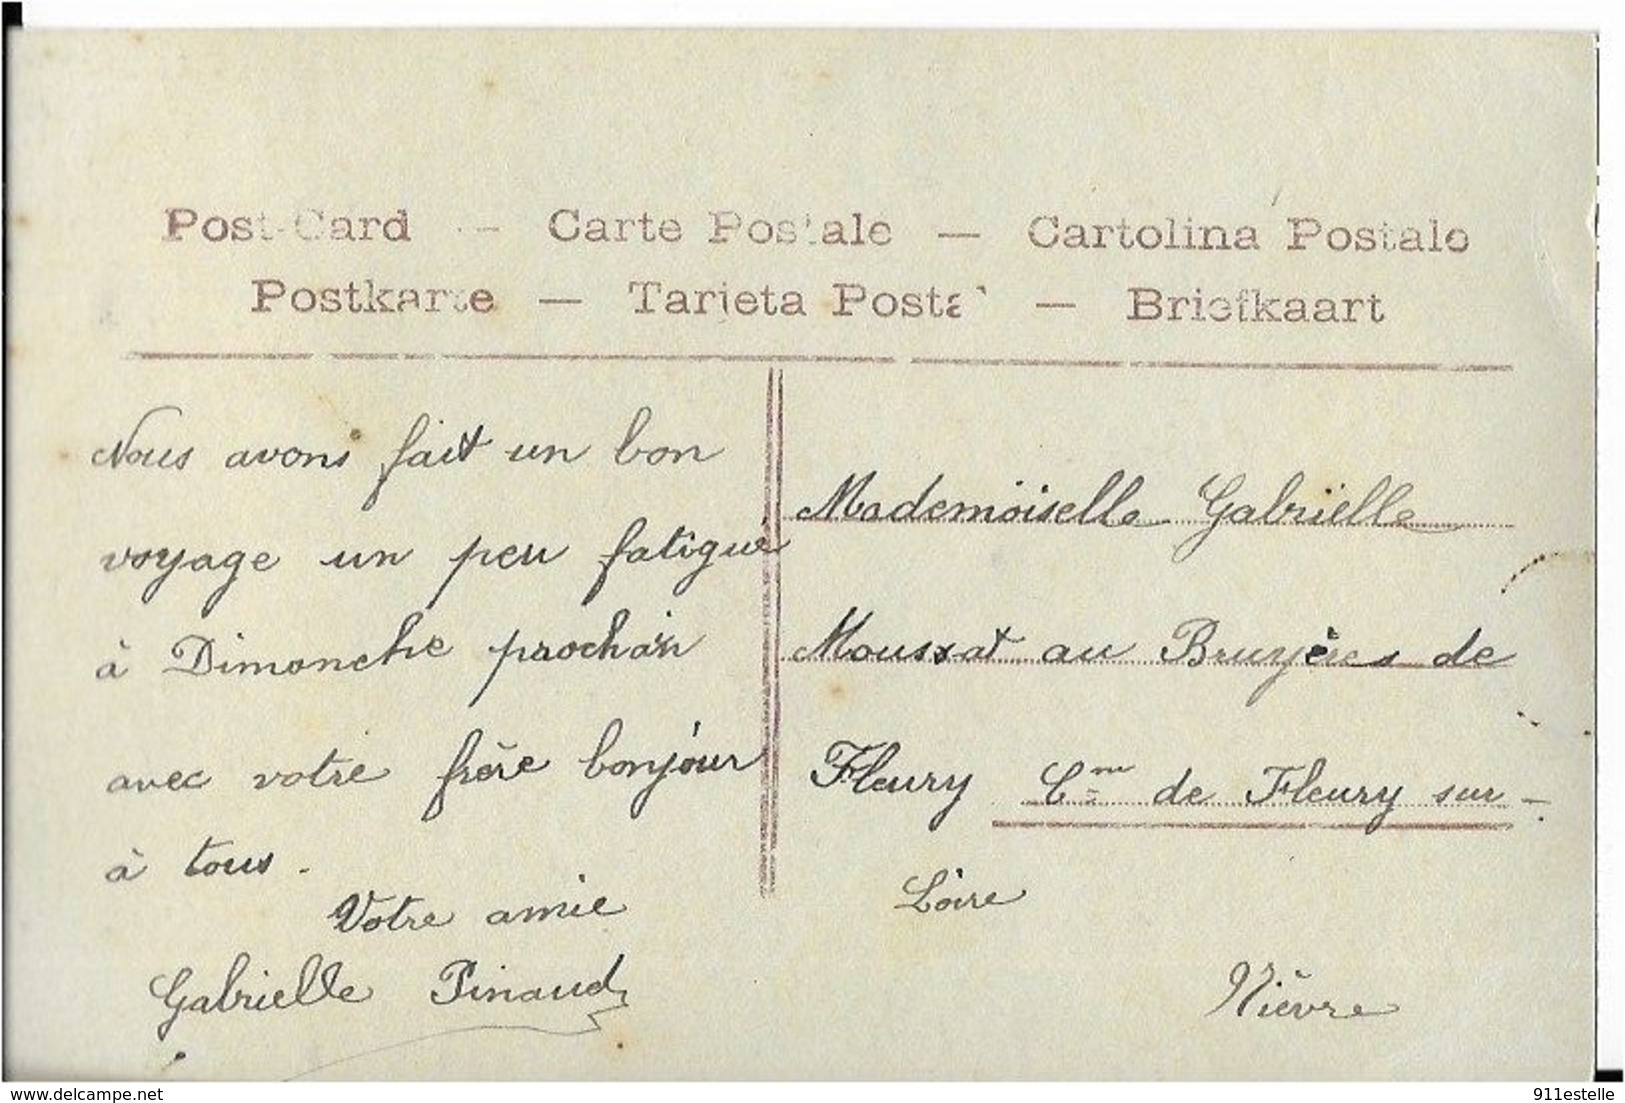 Post-Card — Carte Postale — Cartolina Postale
Postkarte — Tarjeta Postal — Briefkaart
Nous avons fait un bon
voyage un peu fatigué
à Dimanche prochain
avec votre frère bonjour
à tous.
Votre amie
Gabrielle Pinaud
Mademoiselle Gabrielle
Moussat au Bruyères de
Fleury Cne de Fleury sur-
Loire
Nièvre
http://www.delcampe.net
911estelle